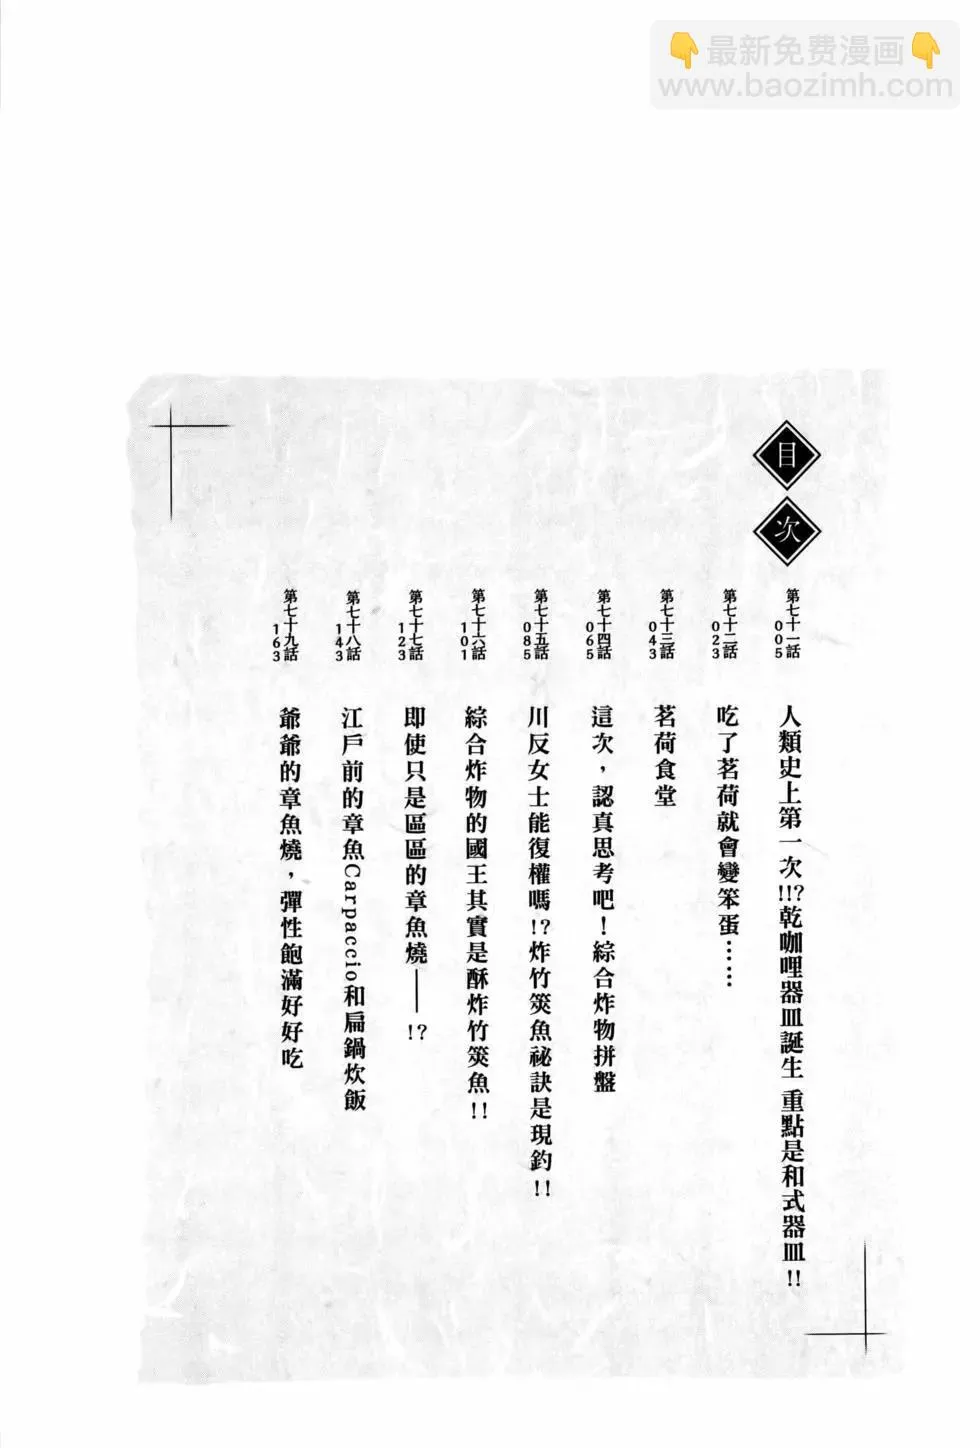 👇最新免费漫画👇
www.baozimh.com
目次
第七十一話 005
人類史上第一次!!?乾咖哩器皿誕生 重點是和式器皿!!
第七十二話 023
吃了茗荷就會變笨蛋……
第七十三話 043
茗荷食堂
第七十四話 065
這次，認真思考吧！綜合炸物拼盤
第七十五話 085
川反女士能復權嗎!?炸竹筴魚祕訣是現釣!!
第七十六話 101
綜合炸物的國王其實是酥炸竹筴魚!!
第七十七話 123
即使只是區區的章魚燒——!?
第七十八話 143
江戶前的章魚Carpaccio和扁鍋炊飯
第七十九話 163
爺爺的章魚燒，彈性飽滿好好吃